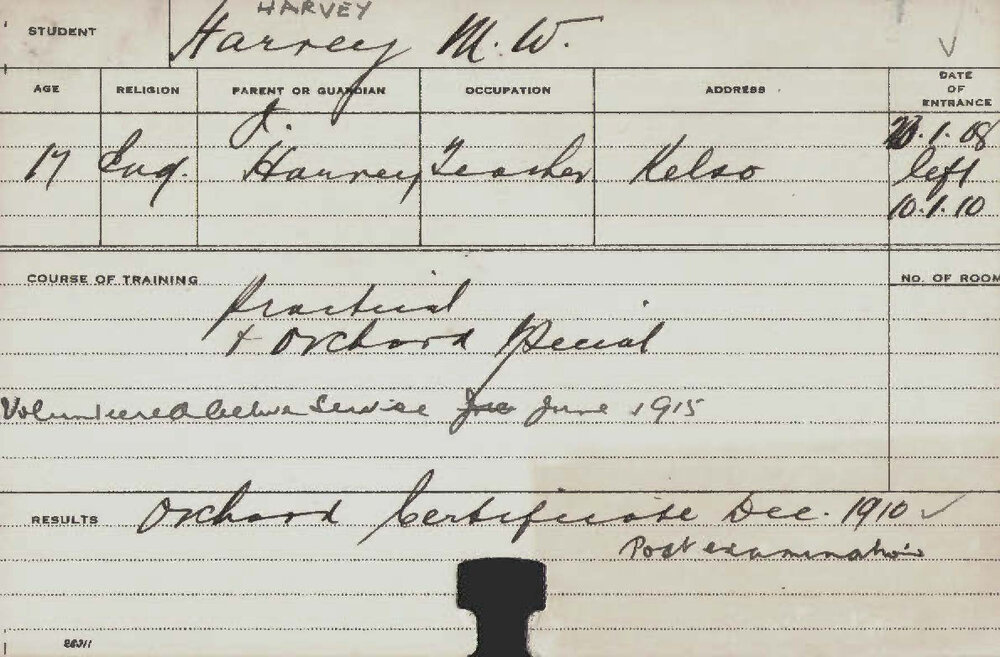 HARVEY
STUDENT Harvey M. W.
AGE RELIGION PARENT OR GUARDIAN OCCUPATION ADDRESS DATE OF ENTRANCE
17 Eng. J. Harvey Teacher Kelso .1.08
left
10.1.10
COURSE OF TRAINING NO. OF ROOM
Practical
+ Orchard Special
Volunteered active service June 1915
RESULTS Orchard Certificate Dec. 1910
Post examination